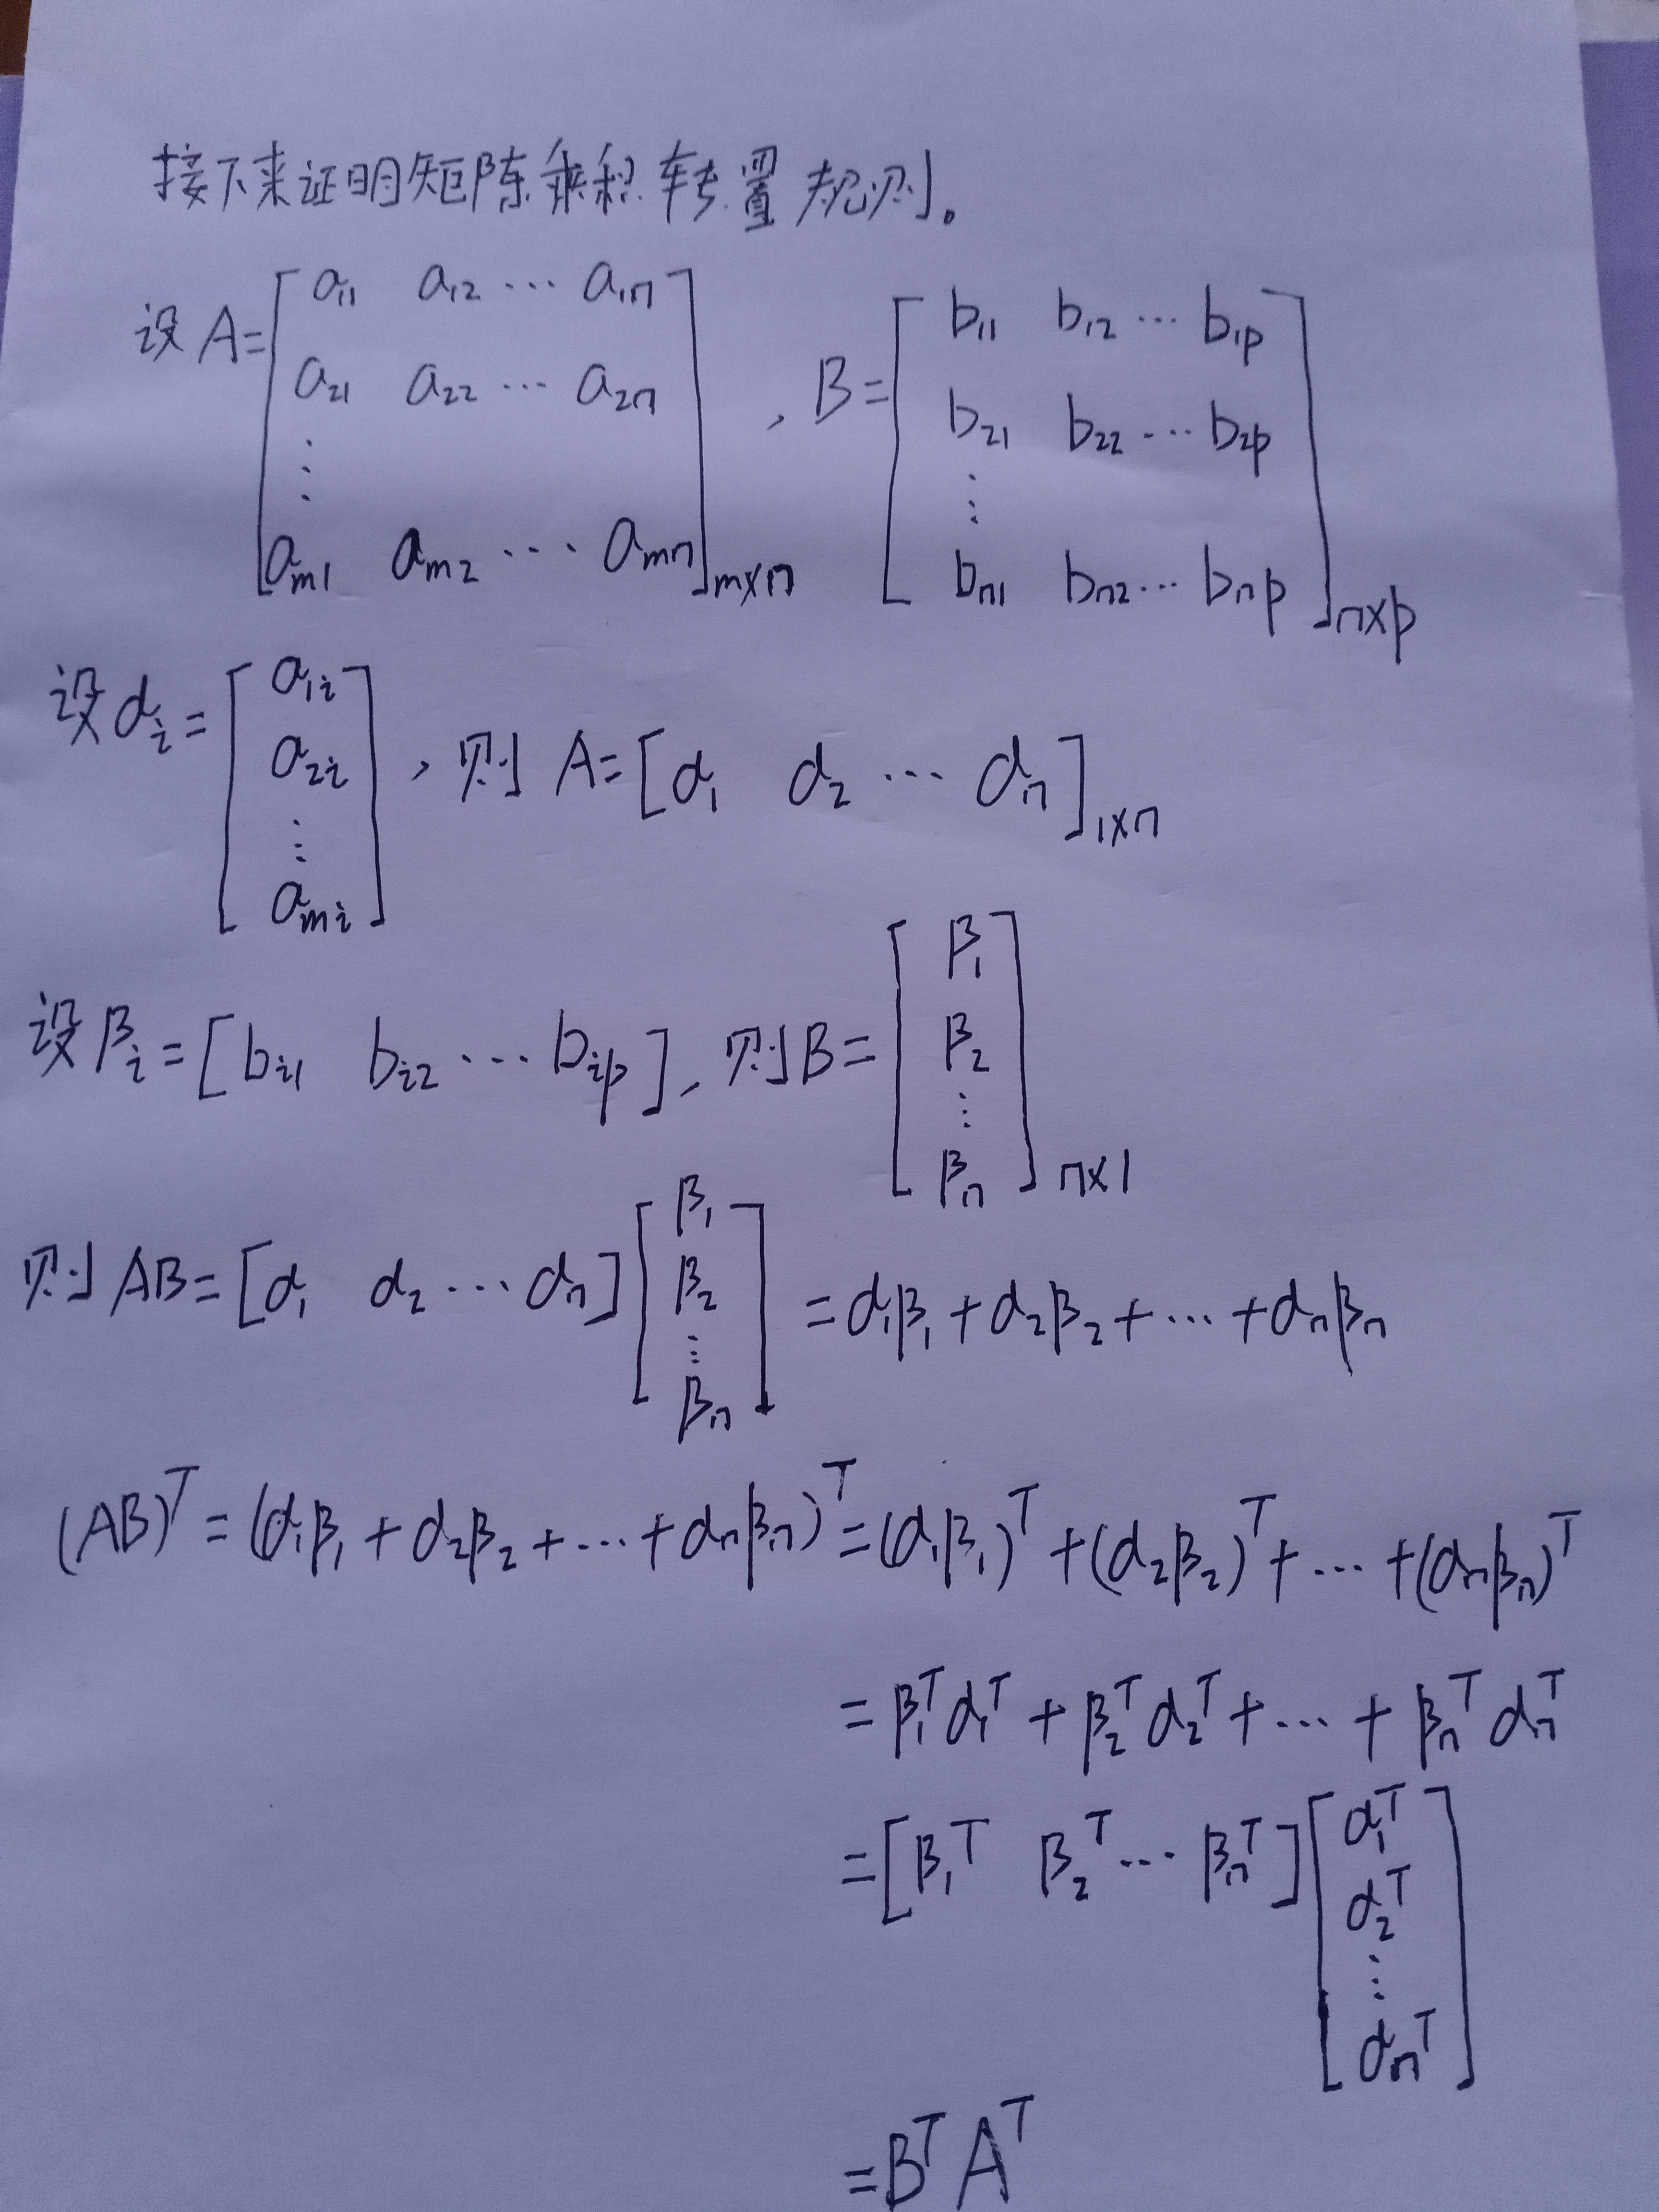 接下来证明矩阵乘积转置规则。
设 A = [ a₁₁ a₁₂ ⋯ a₁ₙ ; a₂₁ a₂₂ ⋯ a₂ₙ ; ⋮ ; aₘ₁ aₘ₂ ⋯ aₘₙ ]ₘ×ₙ , B = [ b₁₁ b₁₂ ⋯ b₁ₚ ; b₂₁ b₂₂ ⋯ b₂ₚ ; ⋮ ; bₙ₁ bₙ₂ ⋯ bₙₚ ]ₙ×ₚ
设 αᵢ = [ a₁ᵢ ; a₂ᵢ ; ⋮ ; aₘᵢ ] , 则 A = [ α₁ α₂ ⋯ αₙ ]₁×ₙ
设 βᵢ = [ bᵢ₁ bᵢ₂ ⋯ bᵢₚ ] , 则 B = [ β₁ ; β₂ ; ⋮ ; βₙ ]ₙ×₁
则 AB = [ α₁ α₂ ⋯ αₙ ] [ β₁ ; β₂ ; ⋮ ; βₙ ] = α₁β₁ + α₂β₂ + ⋯ + αₙβₙ
(AB)ᵀ = (α₁β₁ + α₂β₂ + ⋯ + αₙβₙ)ᵀ = (α₁β₁)ᵀ + (α₂β₂)ᵀ + ⋯ + (αₙβₙ)ᵀ
= β₁ᵀα₁ᵀ + β₂ᵀα₂ᵀ + ⋯ + βₙᵀαₙᵀ
= [ β₁ᵀ β₂ᵀ ⋯ βₙᵀ ] [ α₁ᵀ ; α₂ᵀ ; ⋮ ; αₙᵀ ]
= BᵀAᵀ